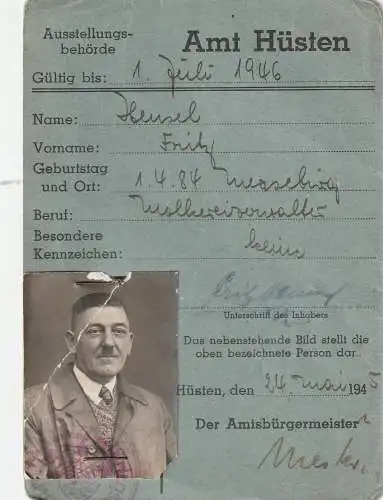 Ausstellungs-
behörde Amt Hüsten
Gültig bis: 1. Juli 1946
Name: Hensel
Vorname: Fritz
Geburtstag
und Ort: 1.4.84 Merseburg
Beruf: Molkereiverwalter
Besondere
Kennzeichen: keine
Unterschrift des Inhabers
Das nebenstehende Bild stellt die
oben bezeichnete Person dar.
Hüsten, den 24. Mai 1945
Der Amtsbürgermeister